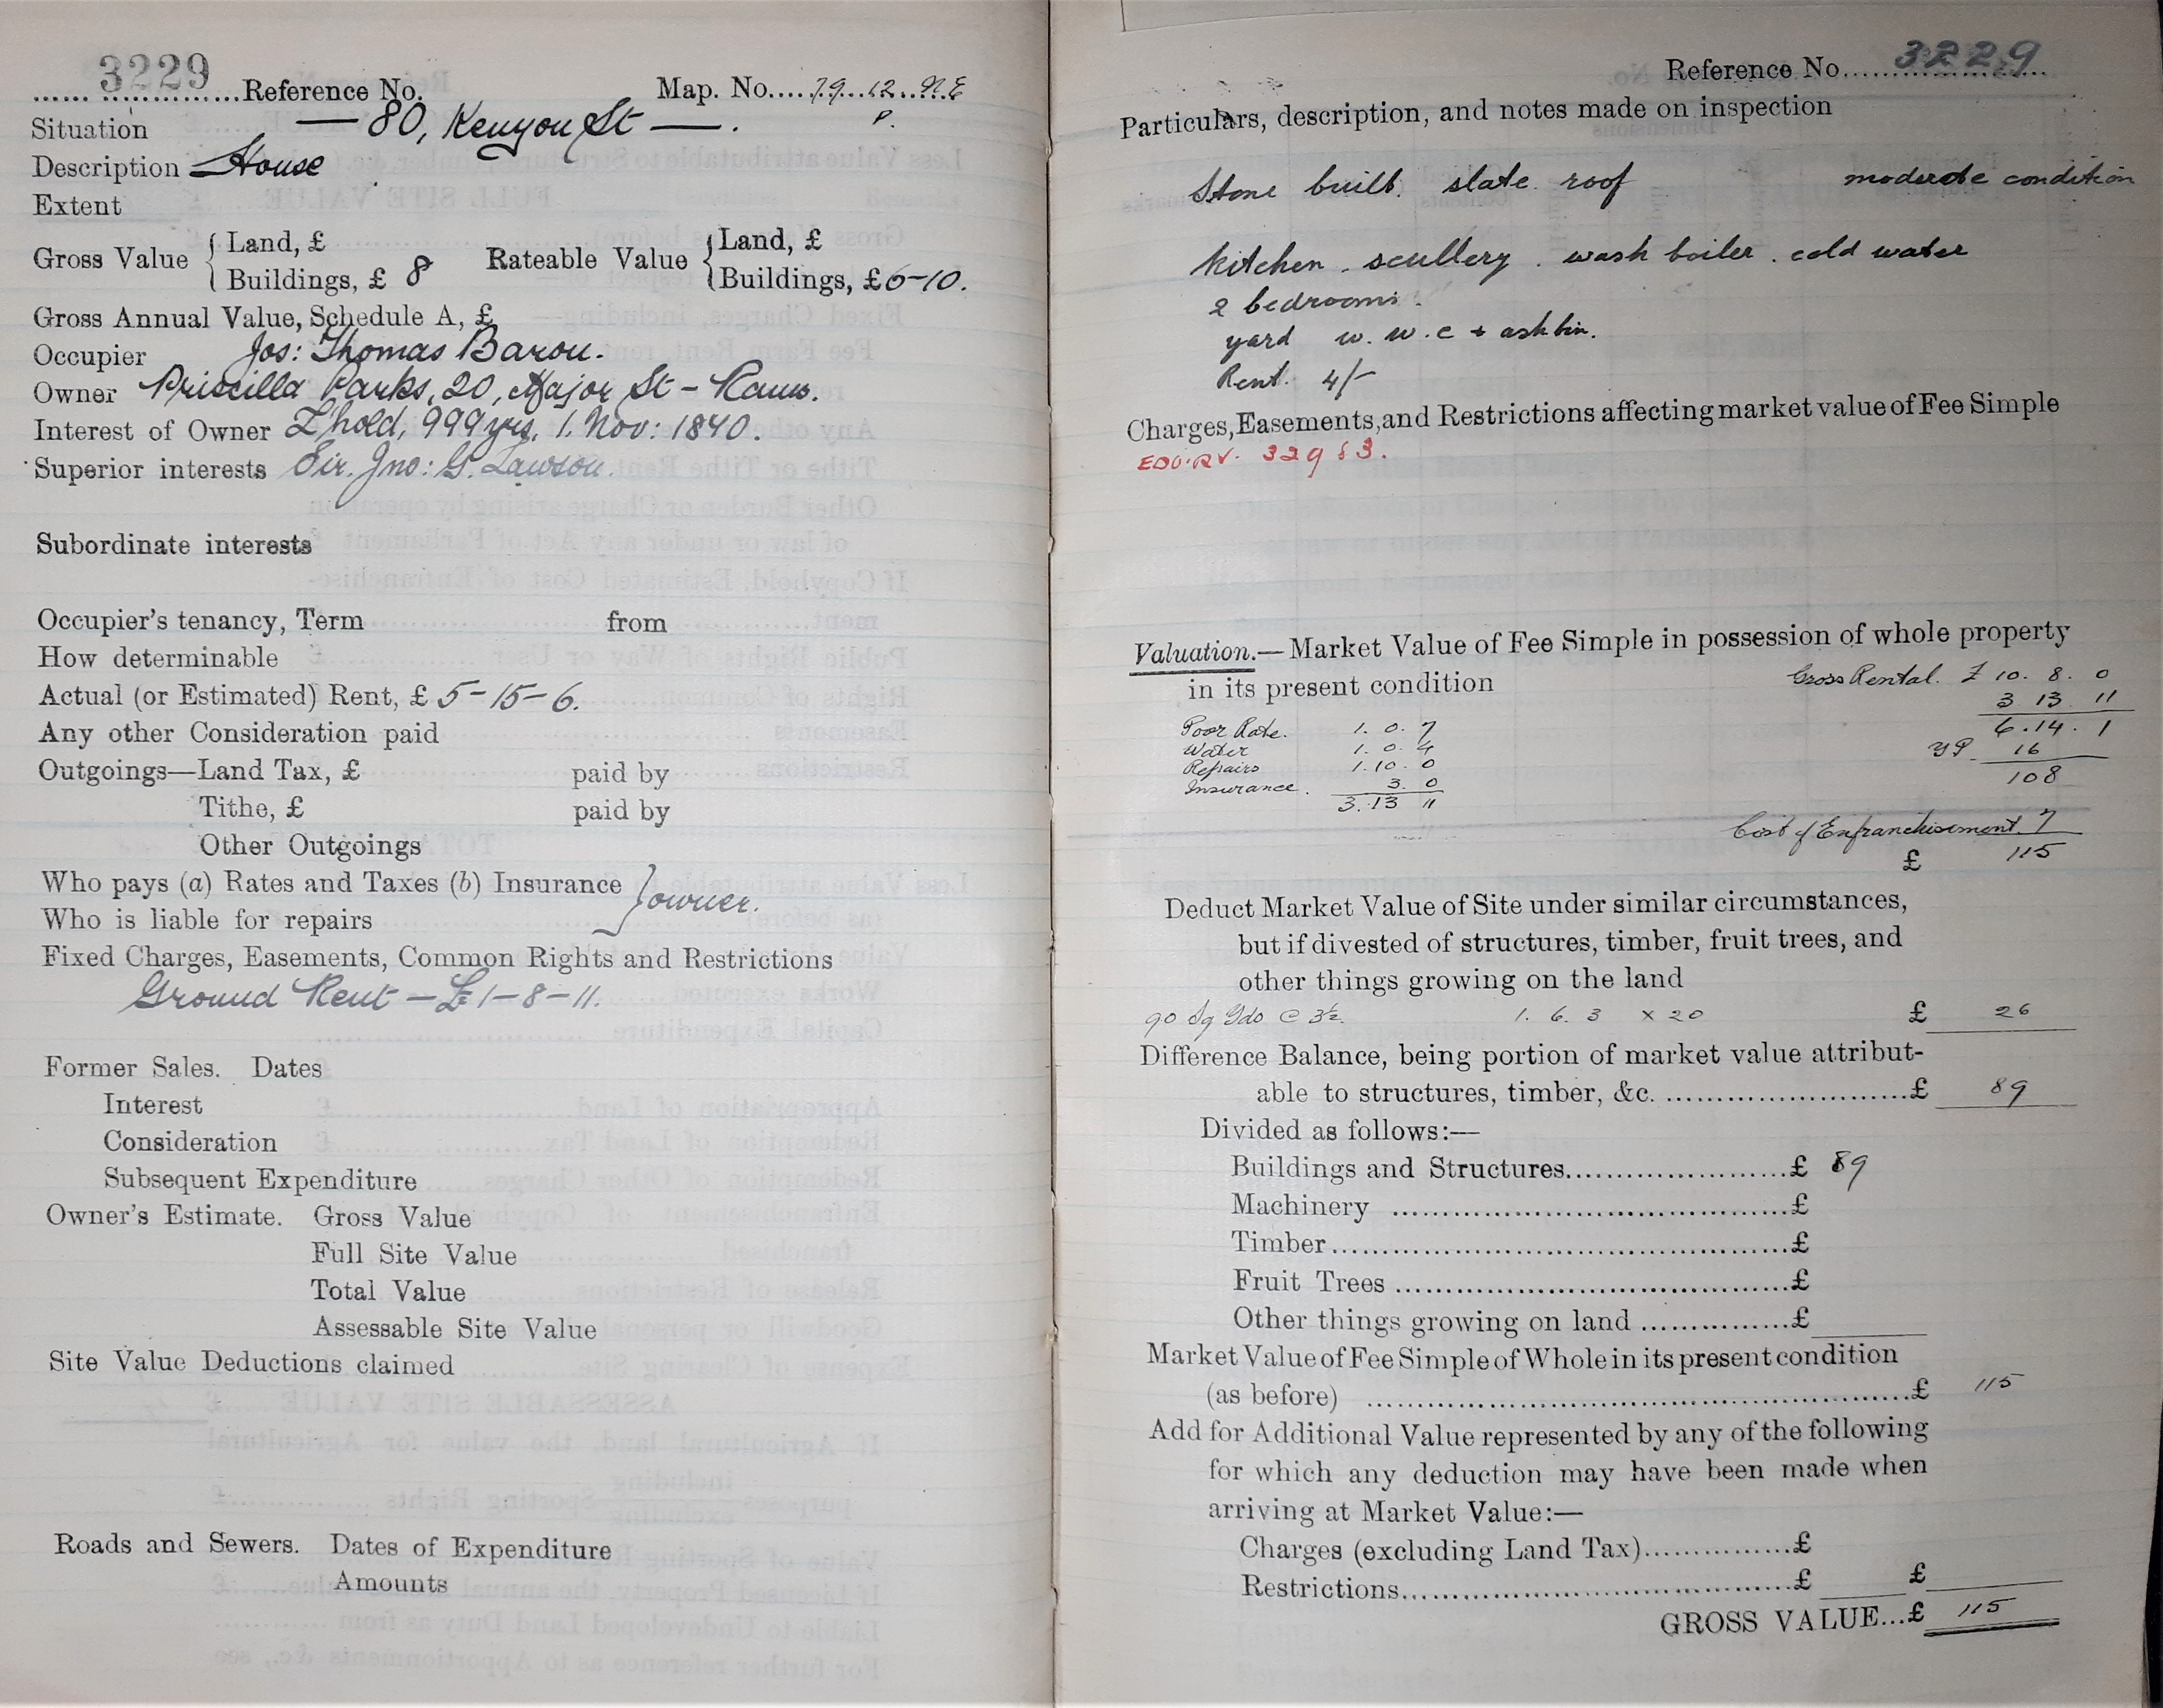 3229 Reference No. Map. No. 79 12 N.E
P.
Situation — 80, Kenyon St —.
Description House
Extent
Gross Value { Land, £ Rateable Value { Land, £
Buildings, £ 8 Buildings, £ 6-10.
Gross Annual Value, Schedule A, £
Occupier Jos: Thomas Baron.
Owner Priscilla Parks, 20, Major St - Rams.
Interest of Owner L'hold, 999 yrs, 1. Nov: 1840.
Superior interests Sir. Jno: G. Lawson.
Subordinate interests
Occupier's tenancy, Term from
How determinable
Actual (or Estimated) Rent, £ 5-15-6.
Any other Consideration paid
Outgoings—Land Tax, £ paid by
Tithe, £ paid by
Other Outgoings
Who pays (a) Rates and Taxes (b) Insurance } owner.
Who is liable for repairs
Fixed Charges, Easements, Common Rights and Restrictions
Ground Rent - £1-8-11.
Former Sales. Dates
Interest
Consideration
Subsequent Expenditure
Owner's Estimate. Gross Value
Full Site Value
Total Value
Assessable Site Value
Site Value Deductions claimed
Roads and Sewers. Dates of Expenditure
Amounts
Reference No. 3229
Particulars, description, and notes made on inspection
Stone built. slate roof moderate condition
kitchen. scullery. wash boiler. cold water
2 bedrooms.
yard w.w.c + ashbin.
Rent. 4/-
Charges, Easements, and Restrictions affecting market value of Fee Simple
Valuation.—Market Value of Fee Simple in possession of whole property
in its present condition Gross Rental. £ 10. 8. 0
3 13 11
Poor Rate. 1. 0. 7 6.14. 1
Water 1. 0. 4 YP 16
Repairs 1.10. 0 108
Insurance. 3. 0
3.13 11
Cost of Enfranchisement 7
£ 115
Deduct Market Value of Site under similar circumstances,
but if divested of structures, timber, fruit trees, and
other things growing on the land
90 Sq Yds @ 3½. 1. 6. 3 x 20 £ 26
Difference Balance, being portion of market value attribut-
able to structures, timber, &c. £ 89
Divided as follows:—
Buildings and Structures £ 89
Machinery £
Timber £
Fruit Trees £
Other things growing on land £
Market Value of Fee Simple of Whole in its present condition
(as before) £ 115
Add for Additional Value represented by any of the following
for which any deduction may have been made when
arriving at Market Value:—
Charges (excluding Land Tax) £
Restrictions £ £
GROSS VALUE...£ 115